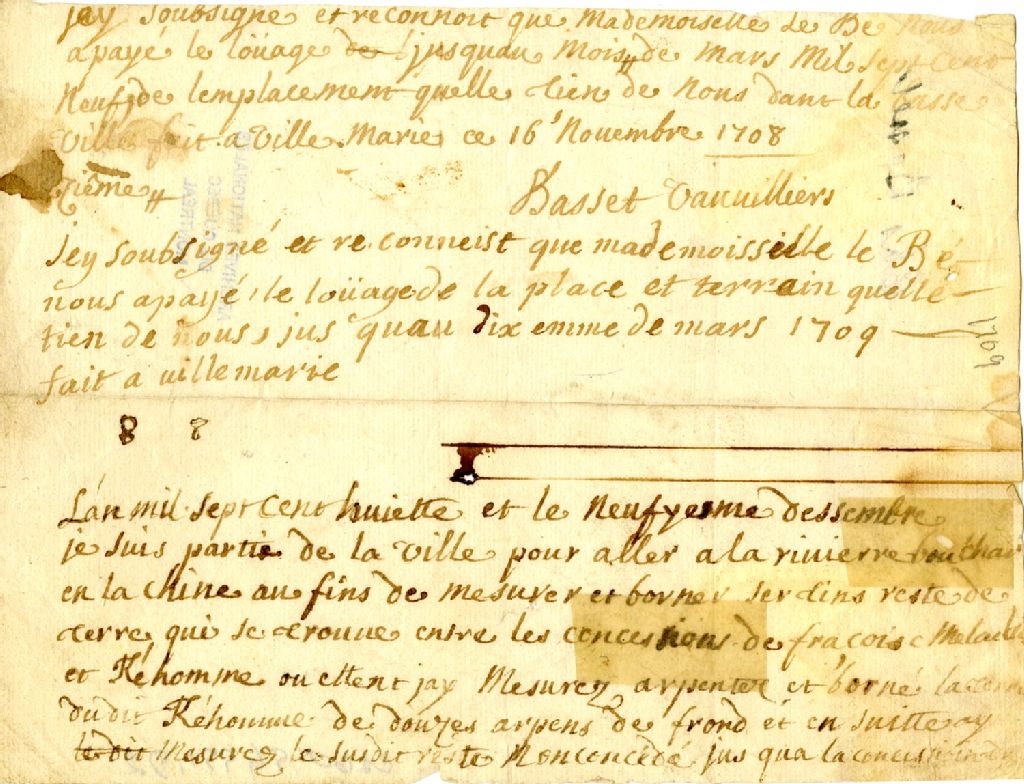 jay soubsigne et reconnoit que Mademoiselle Le Be nous
apayé le loüage de l jusquau Mois de Mars Mil sept cent
Neuf de lemplacement quelle tien de Nous dant la basse
Ville fait a Ville Marie ce 16 Novembre 1708
Basset Vauvilliers
Jey soubsigné et reconneist que mademoisselle le Bé
nous apayé le loüage de la place et terrain quelle
tien de nous jus quau dix emme de mars 1709
fait a villemarie
8 8
Lán mil sept Cent huiette et le Neufyesme dessembre
je suis partie de la ville pour aller a la rivierre
en la chine au fins de mesurer et borner serdins reste de
terre qui se trouve entre les concessions de fracois
et Kéhomme ou ettent jay Mesurez arpenter et borné
dudit Kéhomme de douzes arpens de frond et en suitte ay
ledit Mesurez le susdit reste Nonconcédé jus qua la
1709